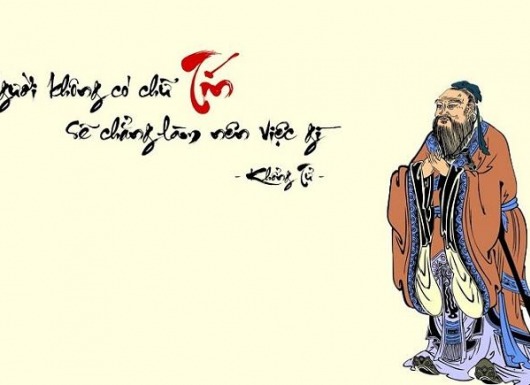 gười không có chữ Tín
Sẽ chẳng làm nên việc gì
- Khổng Tử -